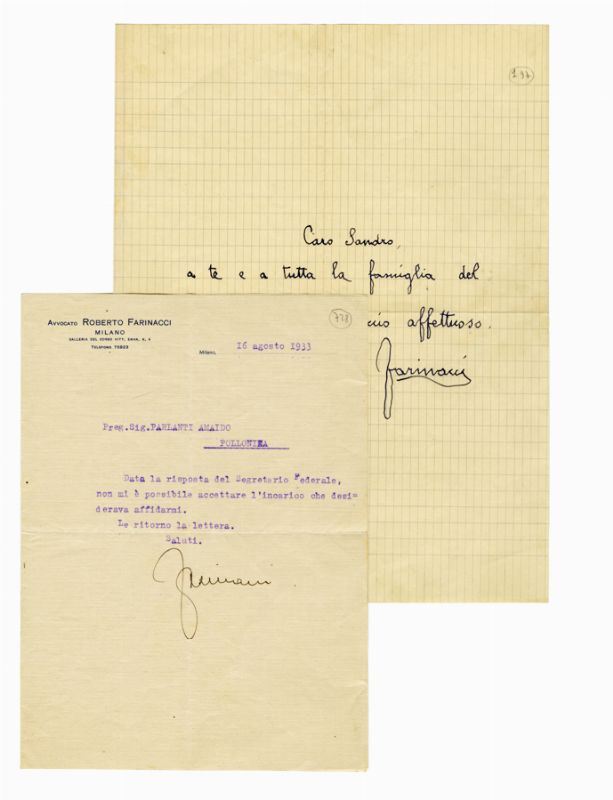 294
Caro Sandro,
a te e a tutta la famiglia del
affettuoso.
Farinacci
AVVOCATO ROBERTO FARINACCI
MILANO
GALLERIA DEL CORSO VITT. EMAN. N. 4
TELEFONO 70823
728
Milano, 16 agosto 1933
Preg.Sig.PARLANTI AMAIDO
POLLONIKA
Data la risposta del Segretario Federale,
non mi è possibile accettare l'incarico che desi=
derava affidarmi.
Le ritorno la lettera.
Saluti.
Farinacci